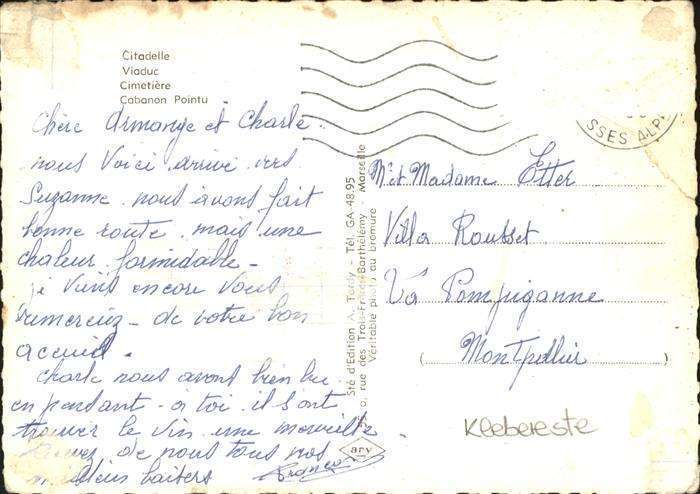 Citadelle
Viaduc
Cimetière
Cabanon Pointu
Chère Armange et Charle.
nous Voici arrivé vers
Suzanne. nous avons fait
bonne route. mais une
chaleur formidable -
je viens encore vous
remercier - de votre bon
acceuil.
Charle nous avons bien bu
en pensant - a toi. il s ont
trouver le vin une merveille
de nous tous nos
meilleurs baisers
Ste d'Edition A. Tardy - Tél. GA 48.95
rue des Trois-Frères-Barthélémy - Marseille
Véritable photo au bromure
ary
SSES ALP
M et Madame Etter
Villa Rousset
La Pompiganne
( Montpellier )
Klebereste